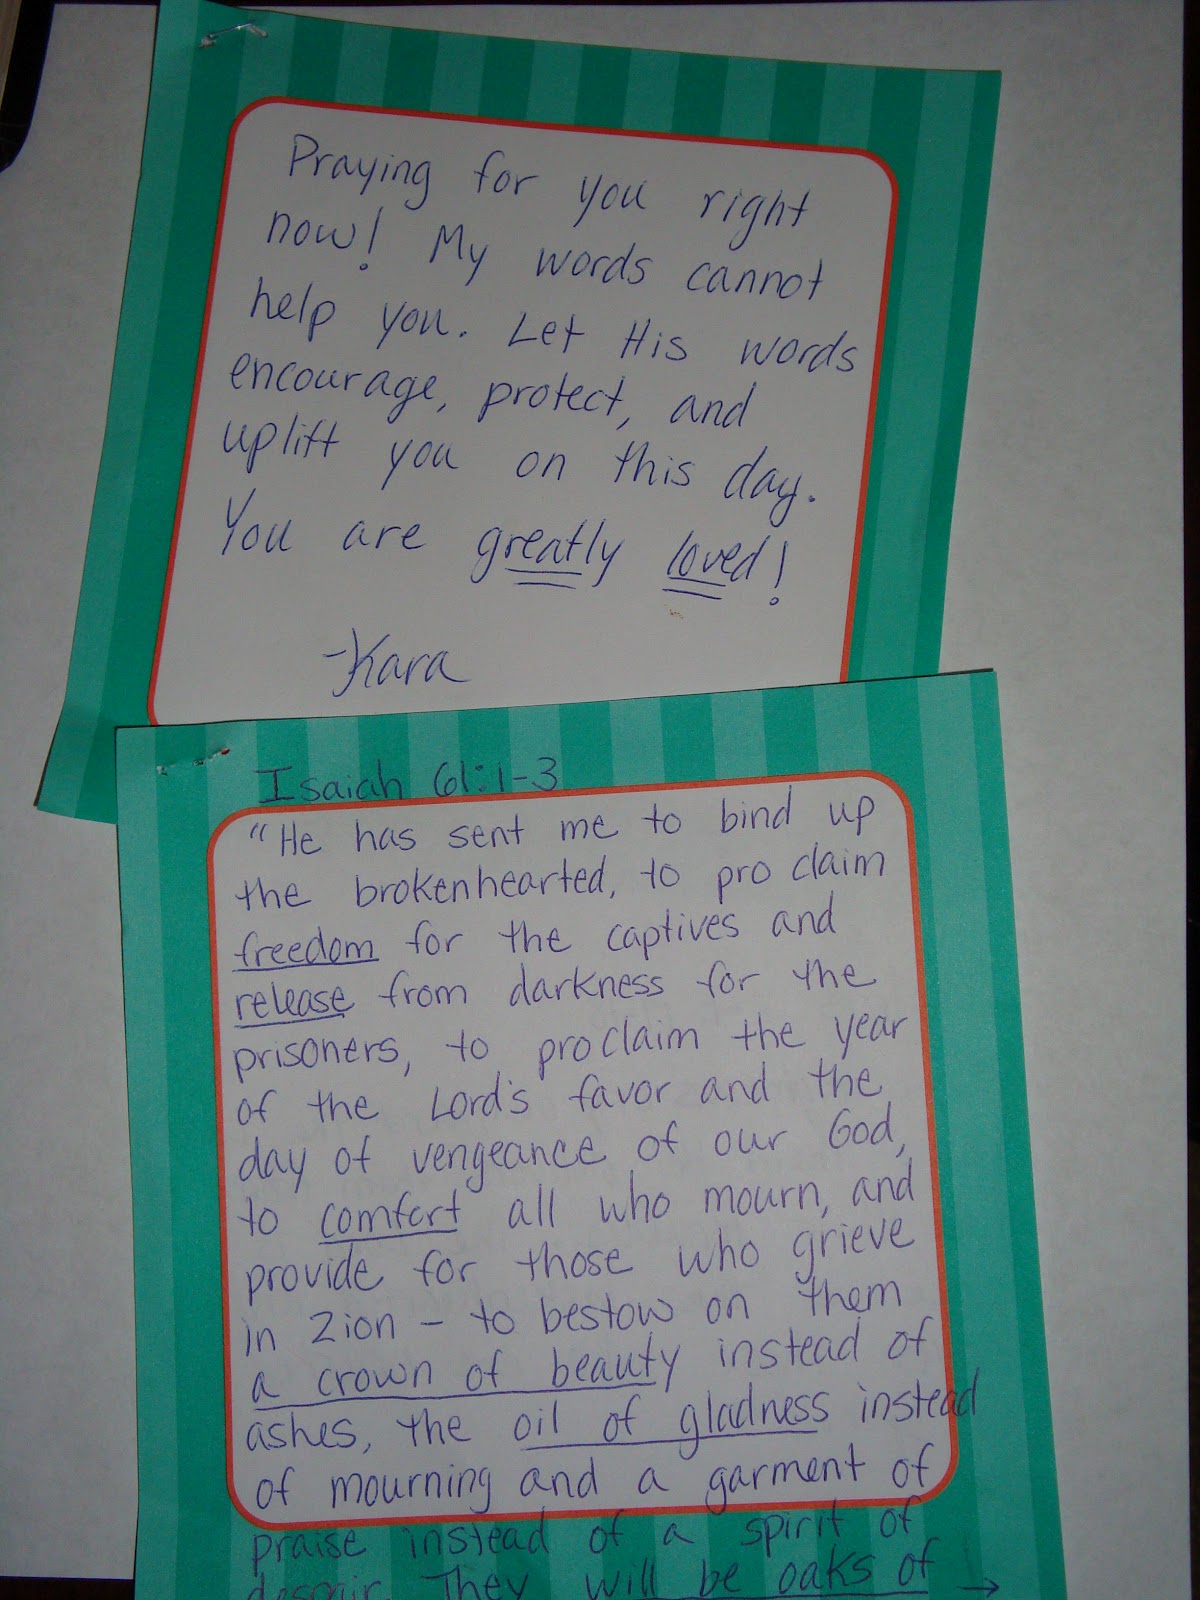 Praying for you right
now! My words cannot
help you. Let His words
encourage, protect, and
uplift you on this day.
You are greatly loved!
-Kara
Isaiah 61:1-3
"He has sent me to bind up
the brokenhearted, to proclaim
freedom for the captives and
release from darkness for the
prisoners, to proclaim the year
of the Lord's favor and the
day of vengeance of our God,
to comfort all who mourn, and
provide for those who grieve
in Zion - to bestow on them
a crown of beauty instead of
ashes, the oil of gladness instead
of mourning and a garment of
praise instead of a spirit of
despair. They will be oaks of →